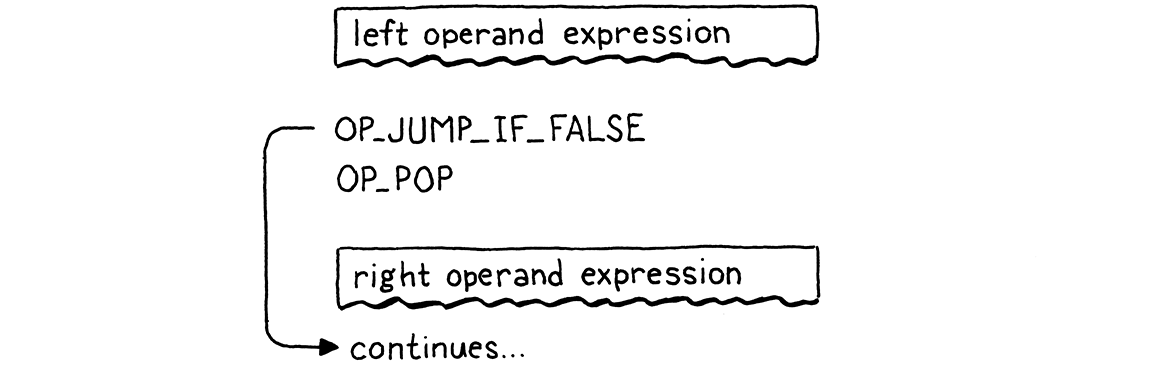 left operand expression
OP_JUMP_IF_FALSE
OP_POP
right operand expression
continues...